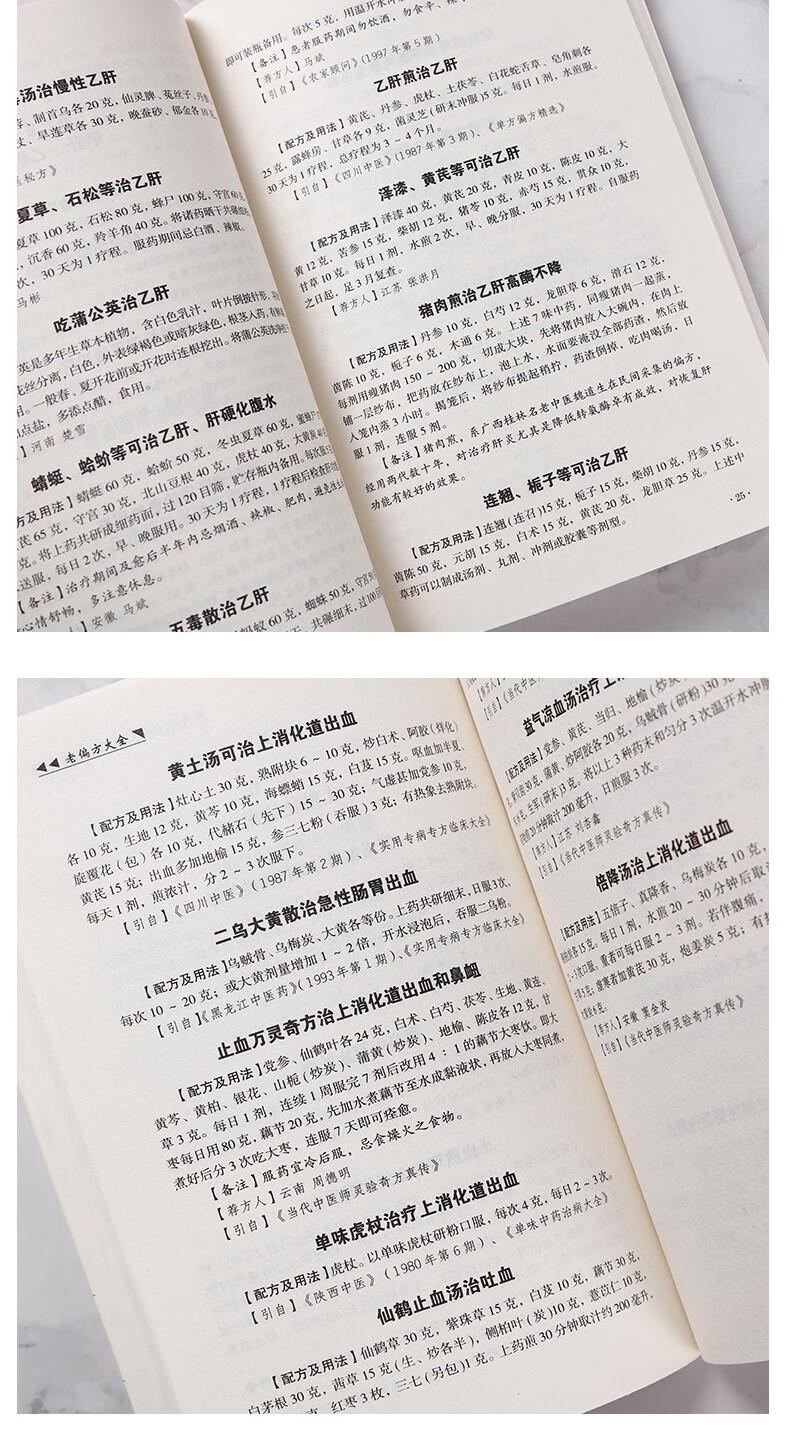 汤治慢性乙肝
、制首乌各20克，仙灵脾、菟丝子、丹参
、旱莲草各30克，晚蚕砂、郁金各10克
医秘方》
夏草、石松等治乙肝
夏草100克，石松80克，蜂尸100克，守宫60克
，沉香60克，羚羊角40克。将诸药晒干共碾细
次，30天为1疗程。服药期间忌白酒、辣椒
马彬
吃蒲公英治乙肝
英是多年生草本植物，含白色乳汁，叶片倒披针形，
丝分离，白色，外表绿褐色或暗灰绿色，根茎入药，有
用。一般春、夏开花前或开花时连根挖出。将蒲公英洗净
加点盐，多添点醋，食用。
】河南 楚雪
蜻蜓、蛤蚧等可治乙肝、肝硬化腹水
方及用法】蜻蜓60克，蛤蚧50克，冬虫夏草60克，蜜蜂
芪65克，守宫30克，北山豆根40克，虎杖40克，大黄
克。将上药共研成细药面，过120目筛，贮存瓶内备用。每次服
送服，每日2次，早、晚服用。30天为1疗程，1疗程后检查
【备注】治疗期间及愈后半年内忌烟酒、辣椒、肥肉，避免
心情舒畅，多注意休息。
】安徽 马斌
五毒散治乙肝
蚂蚁60克，蜘蛛50克，守宫50
克，共碾细末，过100目
即可装瓶备用。每次5克，用温开水冲
【备注】患者服药期间勿饮酒，勿食辛、辣
【荐方人】马斌
【引自】《农家顾问》（1997年第5期）
乙肝煎治乙肝
【配方及用法】黄芪、丹参、虎杖、土茯苓、白花蛇舌草、皂角刺各
25克，露蜂房、甘草各9克，南灵芝（研末冲服）5克。每日1剂，水煎服。
30天为1疗程，总疗程为3～4个月。
【引自】《四川中医》（1987年第3期）、《单方偏方精选》
泽漆、黄芪等可治乙肝
【配方及用法】泽漆40克，黄芪20克，青皮10克，陈皮10克，大
黄12克，苦参15克，柴胡12克，猪苓10克，赤芍15克，贯众10克，
甘草10克。每日1剂，水煎2次，早、晚分服，30天为1疗程。自服药
之日起，足3月复查。
【荐方人】江苏 张洪月
猪肉煎治乙肝高酶不降
【配方及用法】丹参10克，白芍12克，龙胆草6克，滑石12克，
茵陈10克，栀子6克，木通6克。上述7味中药，同瘦猪肉一起蒸，
每剂用瘦猪肉150～200克，切成大块，先将猪肉放入大碗内，在肉上
铺一层纱布，把药放在纱布上，泡上水，水面要淹没全部药渣，然后放
入笼内蒸3小时。揭笼后，将纱布提起稍拧，药渣倒掉，吃肉喝汤，日
服1剂，连服5剂。
【备注】猪肉煎，系广西桂林名老中医魏道生在民间采集的偏方，
经用两代数十年，对治疗肝炎尤其是降低转氨酶卓有成效，对恢复肝
功能有较好的效果。
连翘、栀子等可治乙肝
【配方及用法】连翘（连召）15克，栀子15克，柴胡10克，丹参15克，
茵陈50克，元胡15克，白术15克，黄芪20克，龙胆草25克。上述中
草药可以制成汤剂、丸剂、冲剂或胶囊等剂型。
·25·
老偏方大全
黄土汤可治上消化道出血
【配方及用法】灶心土30克，熟附块6～10克，炒白术、阿胶（烊化）
各10克，生地12克，黄芩10克，海螵蛸15克，白芨15克。呕血加半夏、
旋覆花（包）各10克，代赭石（先下）15～30克；气虚甚加党参10克，
黄芪15克；出血多加地榆15克，参三七粉（吞服）3克；有热象去熟附块。
每天1剂，煎浓汁，分2～3次服下。
【引自】《四川中医》（1987年第2期）、《实用专病专方临床大全》
二乌大黄散治急性肠胃出血
【配方及用法】乌贼骨、乌梅炭、大黄各等份。上药共研细末，日服3次，
每次10～20克；或大黄剂量增加1～2倍，开水浸泡后，吞服二乌粉。
【引自】《黑龙江中医药》（1993年第1期）、《实用专病专方临床大全》
止血万灵奇方治上消化道出血和鼻衄
【配方及用法】党参、仙鹤叶各24克，白术、白芍、茯苓、生地、黄连、
黄芩、黄柏、银花、山栀（炒炭）、蒲黄（炒炭）、地榆、陈皮各12克，甘
草3克。每日1剂，连续1周服完7剂后改用4：1的藕节大枣饮。即大
枣每日用80克，藕节20克，先加水煮藕节至水成黏液状，再放入大枣同煮，
煮好后分3次吃大枣，连服7天即可痊愈。
【备注】服药宜冷后服，忌食燥火之食物。
【荐方人】云南 周德明
【引自】《当代中医师灵验奇方真传》
单味虎杖治疗上消化道出血
【配方及用法】虎杖。以单味虎杖研粉口服，每次4克，每日2～3次。
【引自】《陕西中医》（1980年第6期）、《单味中药治病大全》
仙鹤止血汤治吐血
【配方及用法】仙鹤草30克，紫珠草15克，白芨10克，藕节30克，
白茅根30克，茜草15克（生、炒各半），侧柏叶（炭）10克，薏苡仁10克，
克，红枣3枚，三七（另包）1克。上药煎30分钟取汁约200毫升，
【引自】《当代中
益气凉血汤治疗上消
【配方及用法】党参、黄芪、当归、地榆（炒炭）
30克，蒲黄、炒阿胶各20克，乌贼骨（研粉）30克
，生军（研末）3克。将以上3种药末和匀分3次温开水冲服
20分钟取汁200毫升，日煎服3次。
【荐方人】江苏 刘吉鑫
【引自】《当代中医师灵验奇方真传》
倍降汤治上消化道出血
【配方及用法】五倍子、真降香、乌梅炭各10克，
各15克。每日1剂，水煎20～30分钟后取
口服。重者可每日服2～3剂。若伴腹痛，
克；虚寒者加黄芪30克，炮姜炭5克；有热
6克。
【荐方人】安徽 窦金发
【引自】《当代中医师灵验奇方真传》